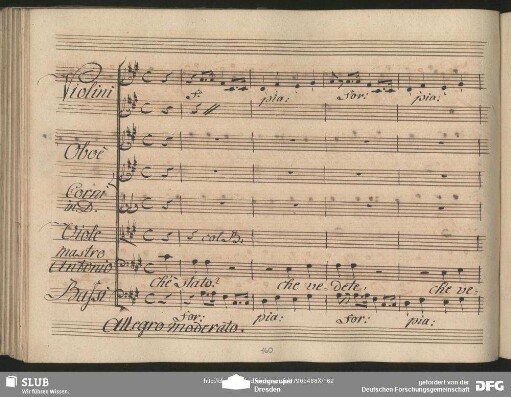 Violini
f: pia: for: pia:
Oboè
Corni
in D.
Viole
col B.
mastro
Antonio
chè stato: che ve-dete, che ve:
Bassi
for: pia: for: pia:
Allegro moderato.
160
SLUB
Wir führen Wissen.
Dresden
gefördert von der
Deutschen Forschungsgemeinschaft
DFG